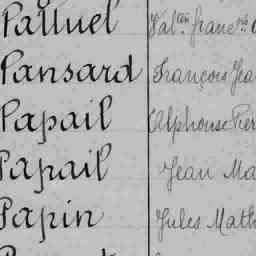 Palluel Val.tin franç.ois
Pansard François Jea
Papail Alphonse Pier
Papail Jean Ma
Papin Jules Math